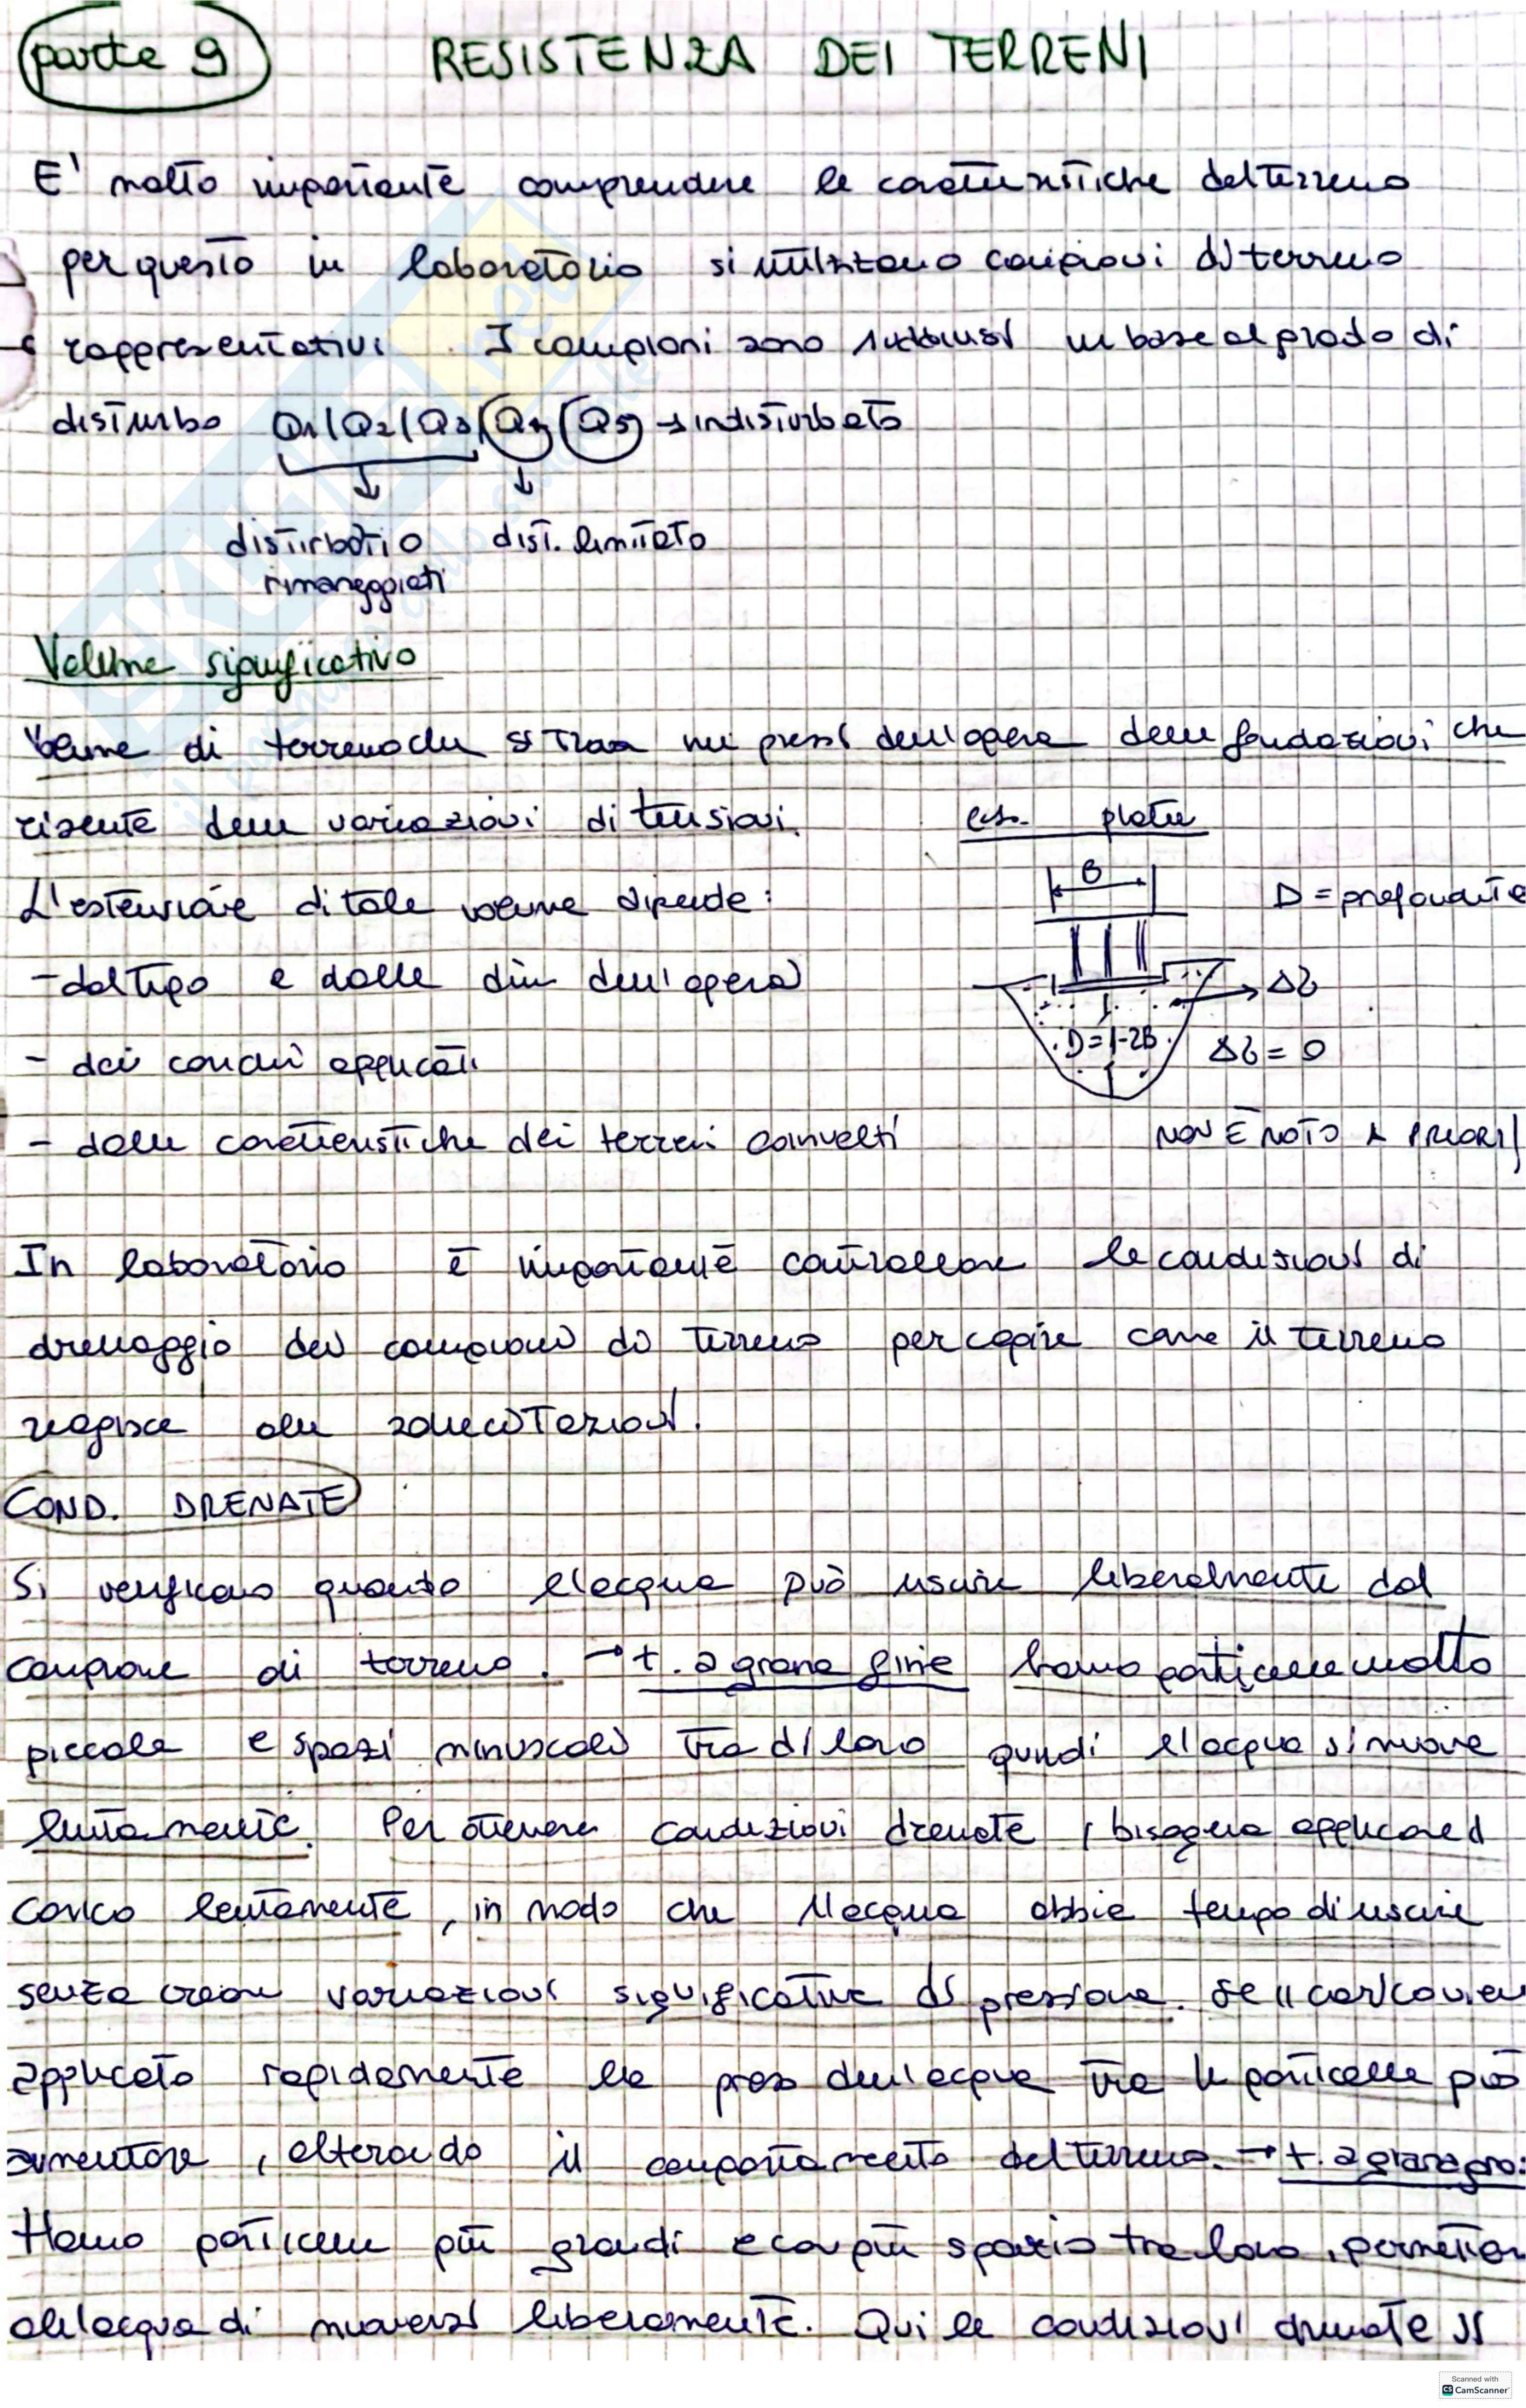 parte 9
RESISTENZA DEI TERRENI
E' molto importante comprendere le caratteristiche del terreno
per questo in laboratorio si utilizzano campioni di terreno
rappresentativi. I campioni sono suddivisi in base al grado di
disturbo Q1/Q2/Q3/Q4/Q5 → indisturbato
disturbati o dist. limitato
rimaneggiati
Volume significativo
Volume di terreno che si trova nei pressi dell'opera delle fondazioni che
risente delle variazioni di tensioni. es. platee
L'estensione di tale volume dipende:
B
D = profondità
- dal tipo e dalle dim dell'opera
Δδ
- dai carichi applicati
D=1-2B
Δδ = 0
- dalle caratteristiche dei terreni coinvolti
NON È NOTO A PRIORI
In laboratorio è importante controllare le condizioni di
drenaggio dei campioni di terreno per capire come il terreno
reagisce alle sollecitazioni.
COND. DRENATE
Si verificano quando l'acqua può uscire liberalmente dal
campione di terreno. → t. a grana fine hanno particelle molto
piccole e spazi minuscoli tra di loro quindi l'acqua si muove
lentamente. Per ottenere condizioni drenate, bisogna applicare il
carico lentamente, in modo che l'acqua abbia tempo di uscire
senza creare variazioni significative di pressione. Se il carico vien
applicato rapidamente la press dell'acqua tra le particelle può
aumentare, alterando il comportamento del terreno. → t. a grana gro:
Hanno particelle più grandi e con più spazio tra loro, permetten
all'acqua di muoversi liberamente. Qui le condizioni drenate si
Scanned with
CS CamScanner